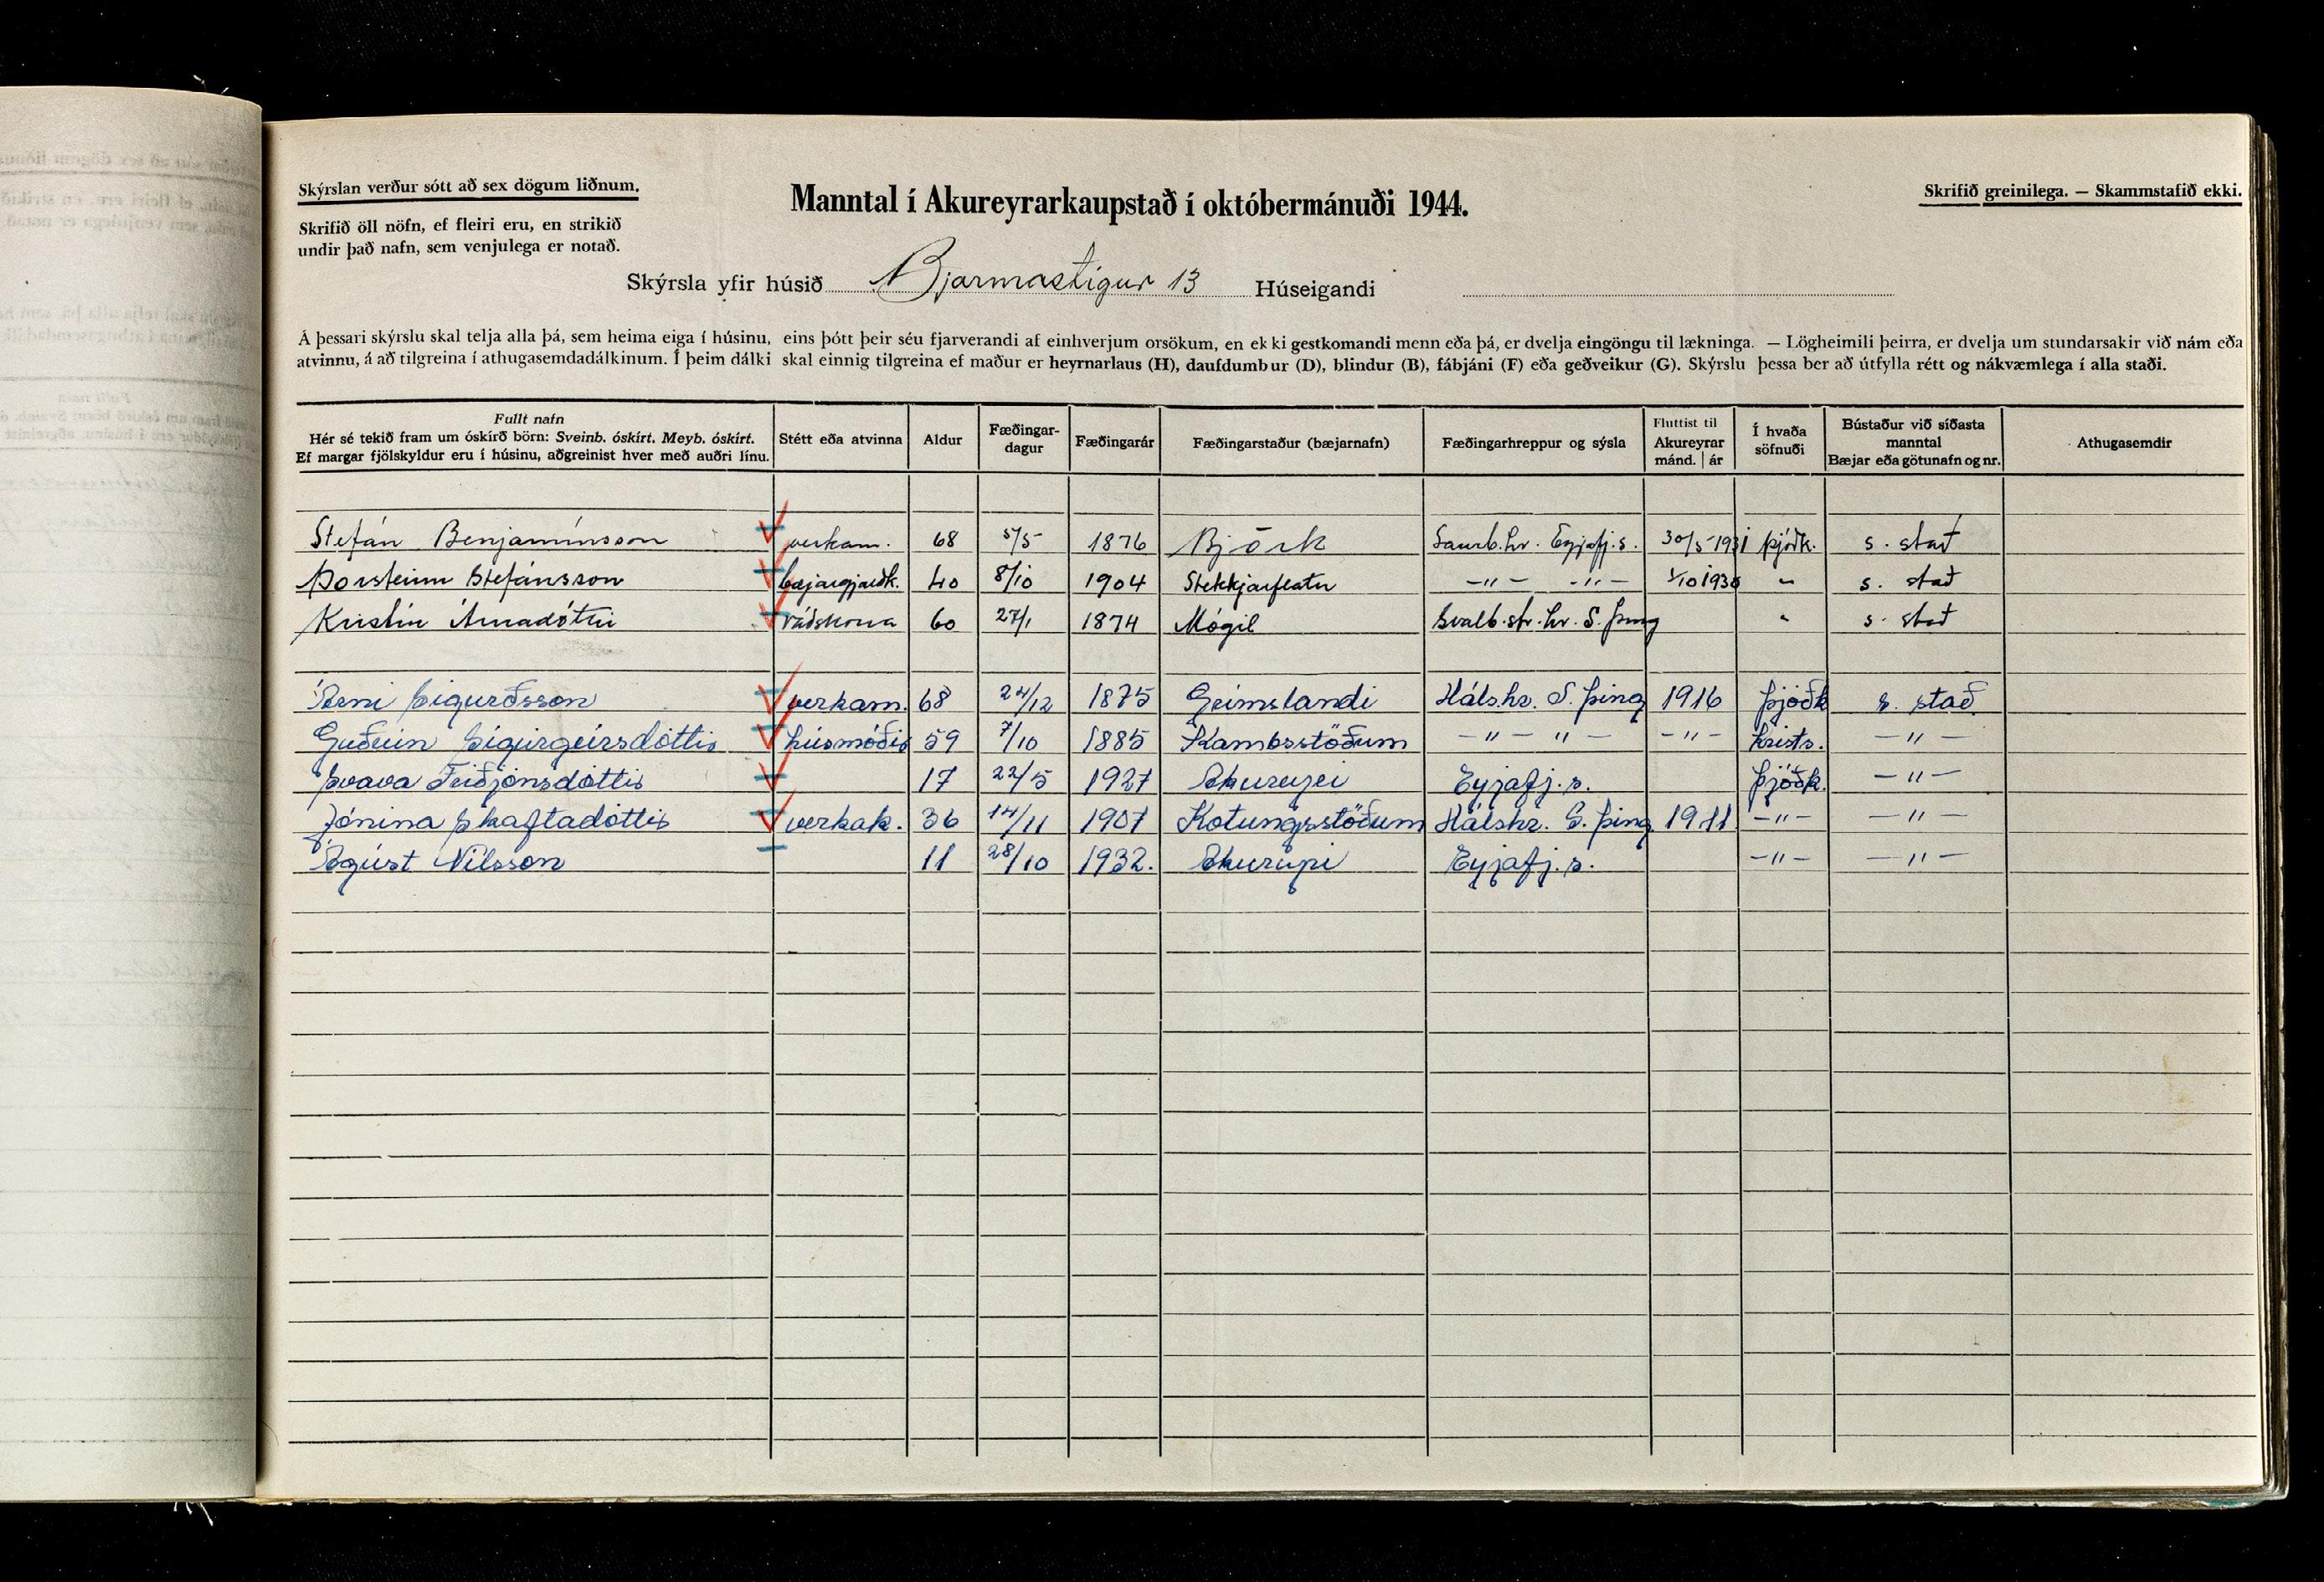 Skýrslan verður sótt að sex dögum liðnum.
Skrifið öll nöfn, ef fleiri eru, en strikið
undir það nafn, sem venjulega er notað.
Manntal í Akureyrarkaupstað í októbermánuði 1944.
Skrifið greinilega. — Skammstafið ekki.
Skýrsla yfir húsið Bjarmastígur 13 Húseigandi
Á þessari skýrslu skal telja alla þá, sem heima eiga í húsinu, eins þótt þeir séu fjarverandi af einhverjum orsökum, en ekki gestkomandi menn eða þá, er dvelja eingöngu til lækninga. — Lögheimili þeirra, er dvelja um stundarsakir við nám eða
atvinnu, á að tilgreina í athugasemdadálkinum. Í þeim dálki skal einnig tilgreina ef maður er heyrnarlaus (H), daufdumbur (D), blindur (B), fábjáni (F) eða geðveikur (G). Skýrslu þessa ber að útfylla rétt og nákvæmlega í alla staði.
Fullt nafn
Hér sé tekið fram um óskírð börn: Sveinb. óskírt. Meyb. óskírt.
Ef margar fjölskyldur eru í húsinu, aðgreinist hver með auðri línu.
Stétt eða atvinna
Aldur
Fæðingar-
dagur
Fæðingarár
Fæðingarstaður (bæjarnafn)
Fæðingarhreppur og sýsla
Fluttist til
Akureyrar
mánd. | ár
Í hvaða
söfnuði
Bústaður við síðasta
manntal
Bæjar eða götunafn og nr.
Athugasemdir
Stefán Benjamínsson verkam. 68 5/5 1876 Björk Saurb.hr. Eyjafj.s. 30/5-1931 þjóðk. s. stað
Þorsteinn Stefánsson bæjargjaldk. 40 8/10 1904 Stekkjarflatir -"- -"- 1/10 193 " s. stað
Kristín Árnadóttir ráðskona 60 27/1 1874 Mógil Svalb.str.hr. S.Þing " s. stað
Árni Sigurðsson verkam. 68 24/12 1875 Grímslandi Hálshr. S. Þing 1916 Þjóðk s. stað
Guðrún Sigurgeirsdóttir húsmóðir 59 7/10 1885 Kambsstöðum -"- "- -"- Kristb. -"-
Svava Friðjónsdóttir 17 22/5 1927 Akureyri Eyjafj.s. Þjóðk. -"-
Jónina Skaftadóttir verkak. 36 14/11 1907 Kotungsstöðum Hálshr. S. Þing 1911 -"- -"-
Ágúst Nílsson 11 28/10 1932. Akureyri Eyjafj.s. -"- -"-